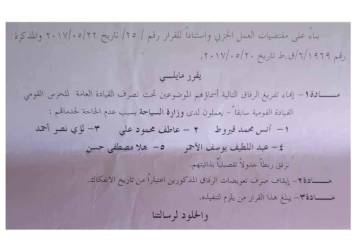 بناءً على مقتضيات العمل الحزبي واستناداً للقرار رقم /٢٥/ تاريخ ٢٠١٧/٠٥/٢٢ والمذكرة
رقم ٦/١٩٦٩/ق.ط تاريخ ٢٠١٧/٠٥/٢٠.
يقرر مايلي
مــادة١- إنهاء تفريغ الرفاق التالية أسماؤهم الموضوعين تحت تصرف القيادة العامة للحرس القومي
القيادة القومية سابقاً - يعملون لدى وزارة السياحة بسبب عدم الحاجة لخدماتهم :
١- أنس محمد قيروط ٢- عاطف محمود علي ٣- لؤي نصر أحمد
٤- عبد اللطيف يوسف الأحمر ٥- هلا مصطفى حسن
نرفق ربطاً جدولاً تفصيلياً بذاتيتهم.
مــادة٢- إيقاف صرف تعويضات الرفاق المذكورين اعتباراً من تاريخ الانفكاك.
مــادة٣- يبلغ هذا القرار من يلزم لتنفيذه.
والخلود لرسالتنا